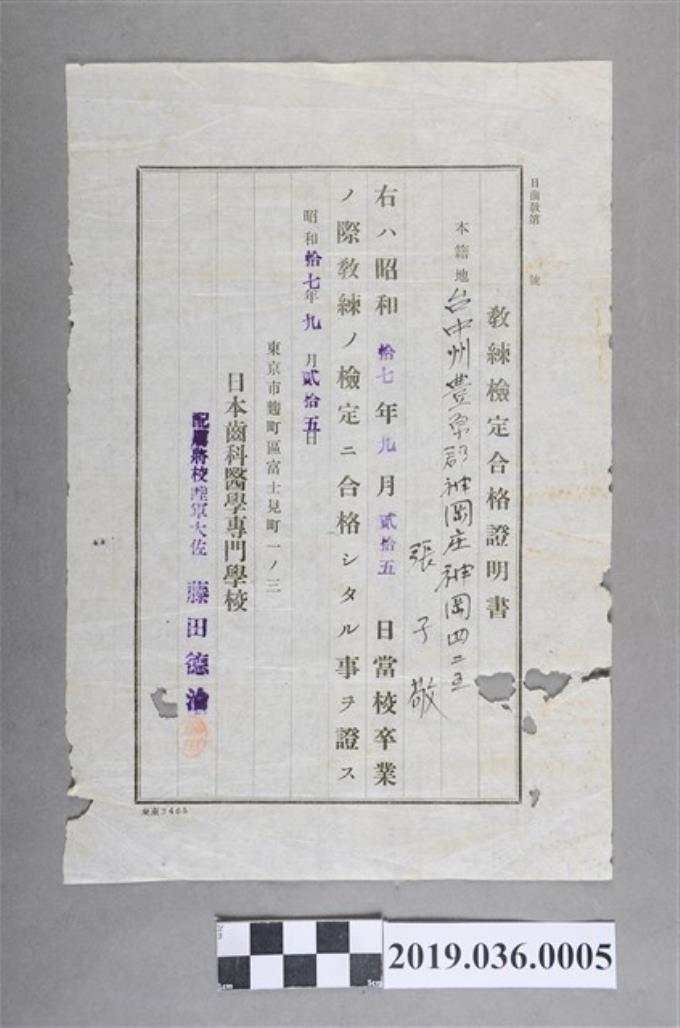 日齒教第　　號
教練檢定合格證明書
本籍地 台中州豊原郡神岡庄神岡四二五
張子敬
右ハ昭和拾七年九月貳拾五日當校卒業
ノ際教練ノ檢定ニ合格シタル事ヲ證ス
昭和拾七年九月貳拾五日
東京市麴町區富士見町一ノ三
日本齒科醫學專門學校
配屬將校陸軍大佐 藤田德
東京3465
2019.036.0005